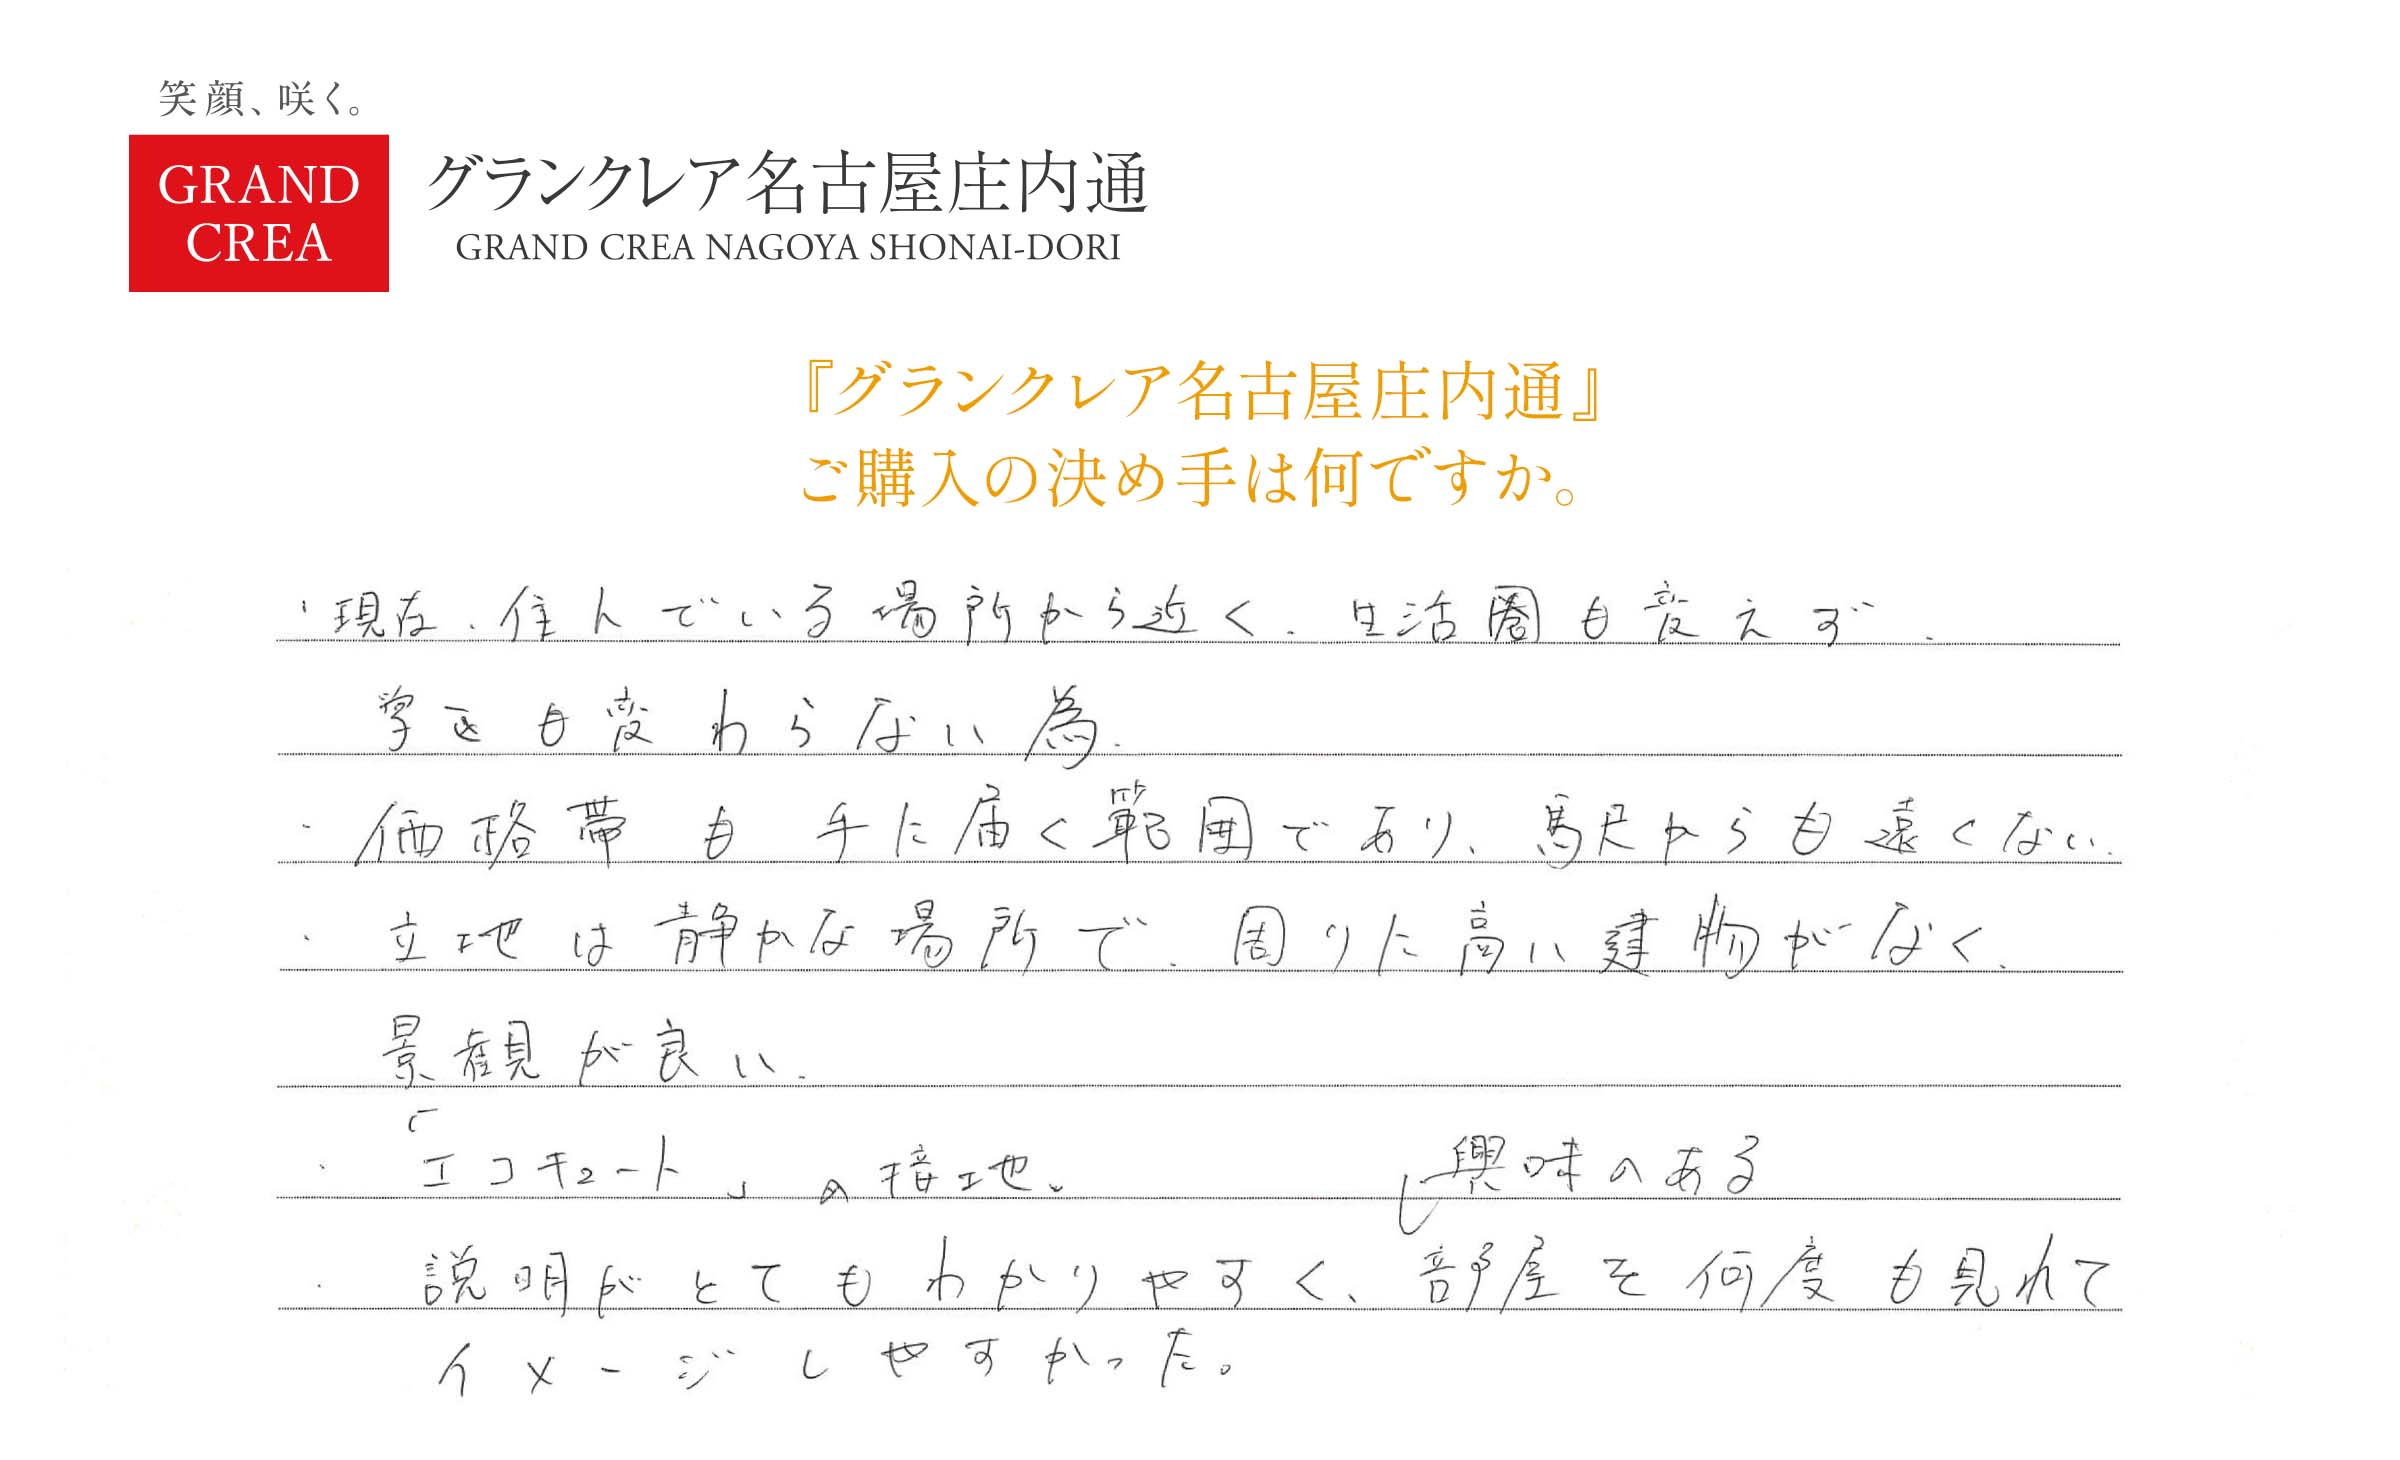 笑顔、咲く。
GRAND
CREA
グランクレア名古屋庄内通
GRAND CREA NAGOYA SHONAI-DORI
『グランクレア名古屋庄内通』
ご購入の決め手は何ですか。
・現在、住んでいる場所から近く、生活圏も変えず、
学区も変わらない為、
・価格帯も手に届く範囲であり、駅からも遠くない、
・立地は静かな場所で、周りに高い建物がなく、
景観が良い、
・「エコキュート」の接地。
興味のある
・説明がとてもわかりやすく、部屋を何度も見れて
イメージしやすかった。